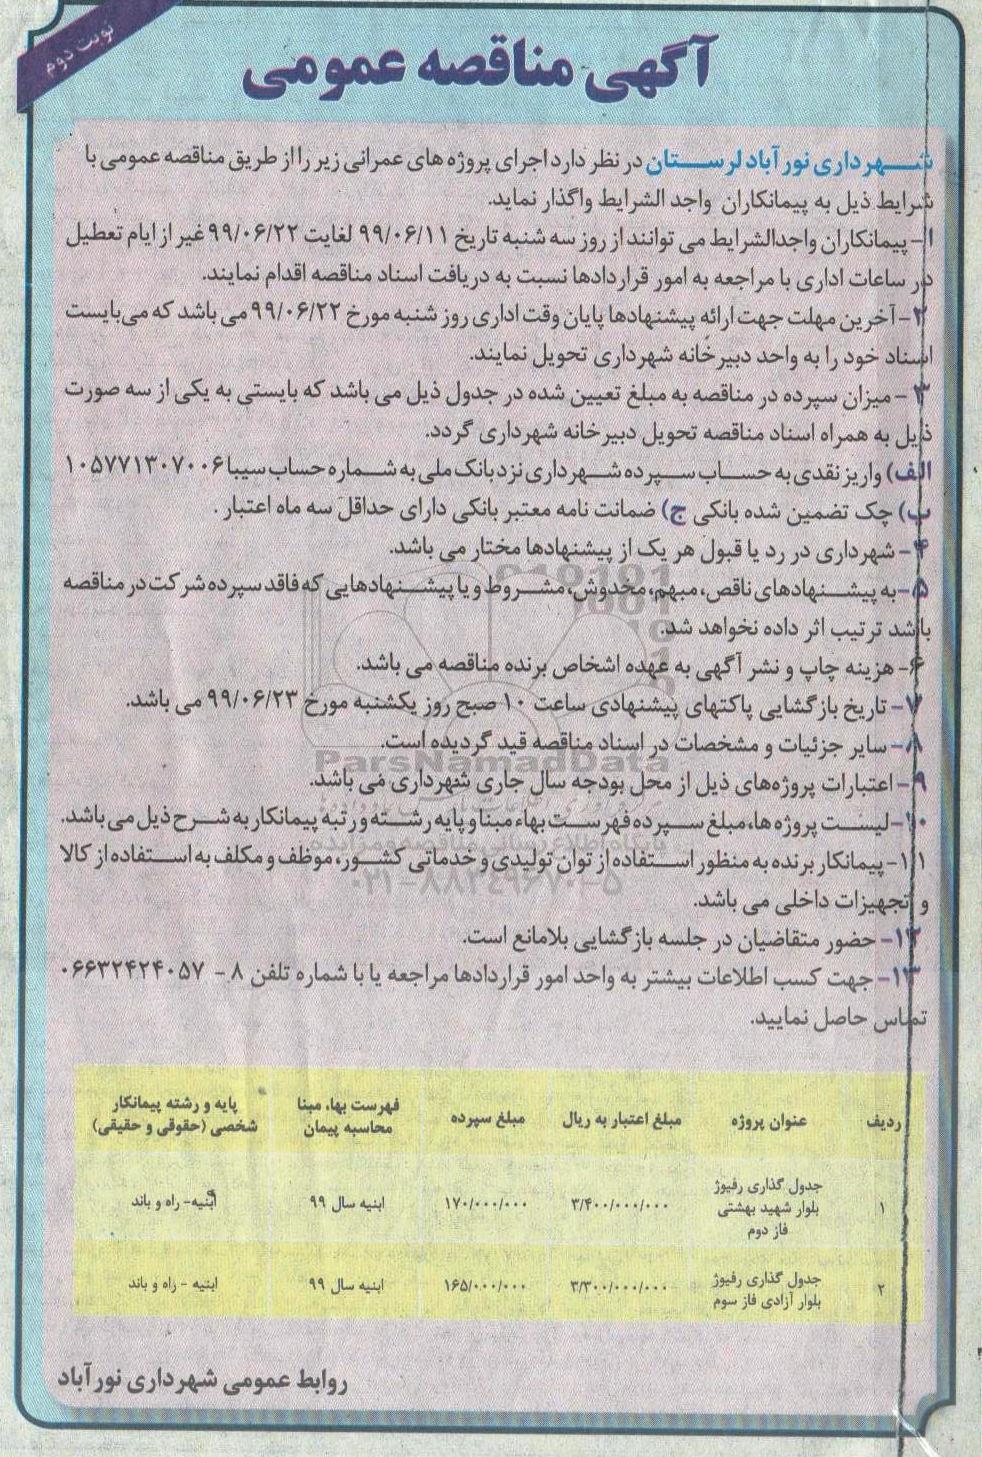 نوبت دوم
آگهی مناقصه عمومی
شهرداری نورآباد لرستان در نظر دارد اجرای پروژه های عمرانی زیر را از طریق مناقصه عمومی با
شرایط ذیل به پیمانکاران واجد الشرایط واگذار نماید.
۱- پیمانکاران واجدالشرایط می توانند از روز سه شنبه تاریخ ۹۹/۰۶/۱۱ لغایت ۹۹/۰۶/۲۲ غیر از ایام تعطیل
در ساعات اداری با مراجعه به امور قراردادها نسبت به دریافت اسناد مناقصه اقدام نمایند.
۲-آخرین مهلت جهت ارائه پیشنهادها پایان وقت اداری روز شنبه مورخ ۹۹/۰۶/۲۲ می باشد که می‌بایست
اسناد خود را به واحد دبیرخانه شهرداری تحویل نمایند.
۳- میزان سپرده در مناقصه به مبلغ تعیین شده در جدول ذیل می باشد که بایستی به یکی از سه صورت
ذیل به همراه اسناد مناقصه تحویل دبیرخانه شهرداری گردد.
الف) واریز نقدی به حساب سپرده شهرداری نزد بانک ملی به شماره حساب سیبا ۱۰۵۷۷۱۳۰۷۰۰۶
ب) چک تضمین شده بانکی ج) ضمانت نامه معتبر بانکی دارای حداقل سه ماه اعتبار .
۴- شهرداری در رد یا قبول هر یک از پیشنهادها مختار می باشد.
۵-به پیشنهادهای ناقص، مبهم، مخدوش، مشروط و یا پیشنهادهایی که فاقد سپرده شرکت در مناقصه
باشد ترتیب اثر داده نخواهد شد.
۶- هزینه چاپ و نشر آگهی به عهده اشخاص برنده مناقصه می باشد.
۷- تاریخ بازگشایی پاکتهای پیشنهادی ساعت ۱۰ صبح روز یکشنبه مورخ ۹۹/۰۶/۲۳ می باشد.
۸- سایر جزئیات و مشخصات در اسناد مناقصه قید گردیده است.
ParsNamadData
۹- اعتبارات پروژه‌های ذیل از محل بودجه سال جاری شهرداری می باشد.
۱۰-لیست پروژه ها، مبلغ سپرده فهرست بهاء مبنا و پایه رشته و رتبه پیمانکار به شرح ذیل می باشد.
۱۱- پیمانکار برنده به منظور استفاده از توان تولیدی و خدماتی کشور، موظف و مکلف به استفاده از کالا
۰۲۱-۸۸۳۴۹۶۷۰-۵
و تجهیزات داخلی می باشد.
۱۲- حضور متقاضیان در جلسه بازگشایی بلامانع است.
۱۳- جهت کسب اطلاعات بیشتر به واحد امور قراردادها مراجعه یا با شماره تلفن ۸ - ۰۶۶۳۲۴۲۴۰۵۷
تماس حاصل نمایید.
ردیف عنوان پروژه مبلغ اعتبار به ریال مبلغ سپرده فهرست بها، مبنا محاسبه پیمان پایه و رشته پیمانکار شخصی (حقوقی و حقیقی)
۱ جدول گذاری رفیوژ بلوار شهید بهشتی فاز دوم ۳/۴۰۰/۰۰۰/۰۰۰ ۱۷۰/۰۰۰/۰۰۰ ابنیه سال ۹۹ ابنیه- راه و باند
۲ جدول گذاری رفیوژ بلوار آزادی فاز سوم ۳/۳۰۰/۰۰۰/۰۰۰ ۱۶۵/۰۰۰/۰۰۰ ابنیه سال ۹۹ ابنیه - راه و باند
روابط عمومی شهرداری نورآباد